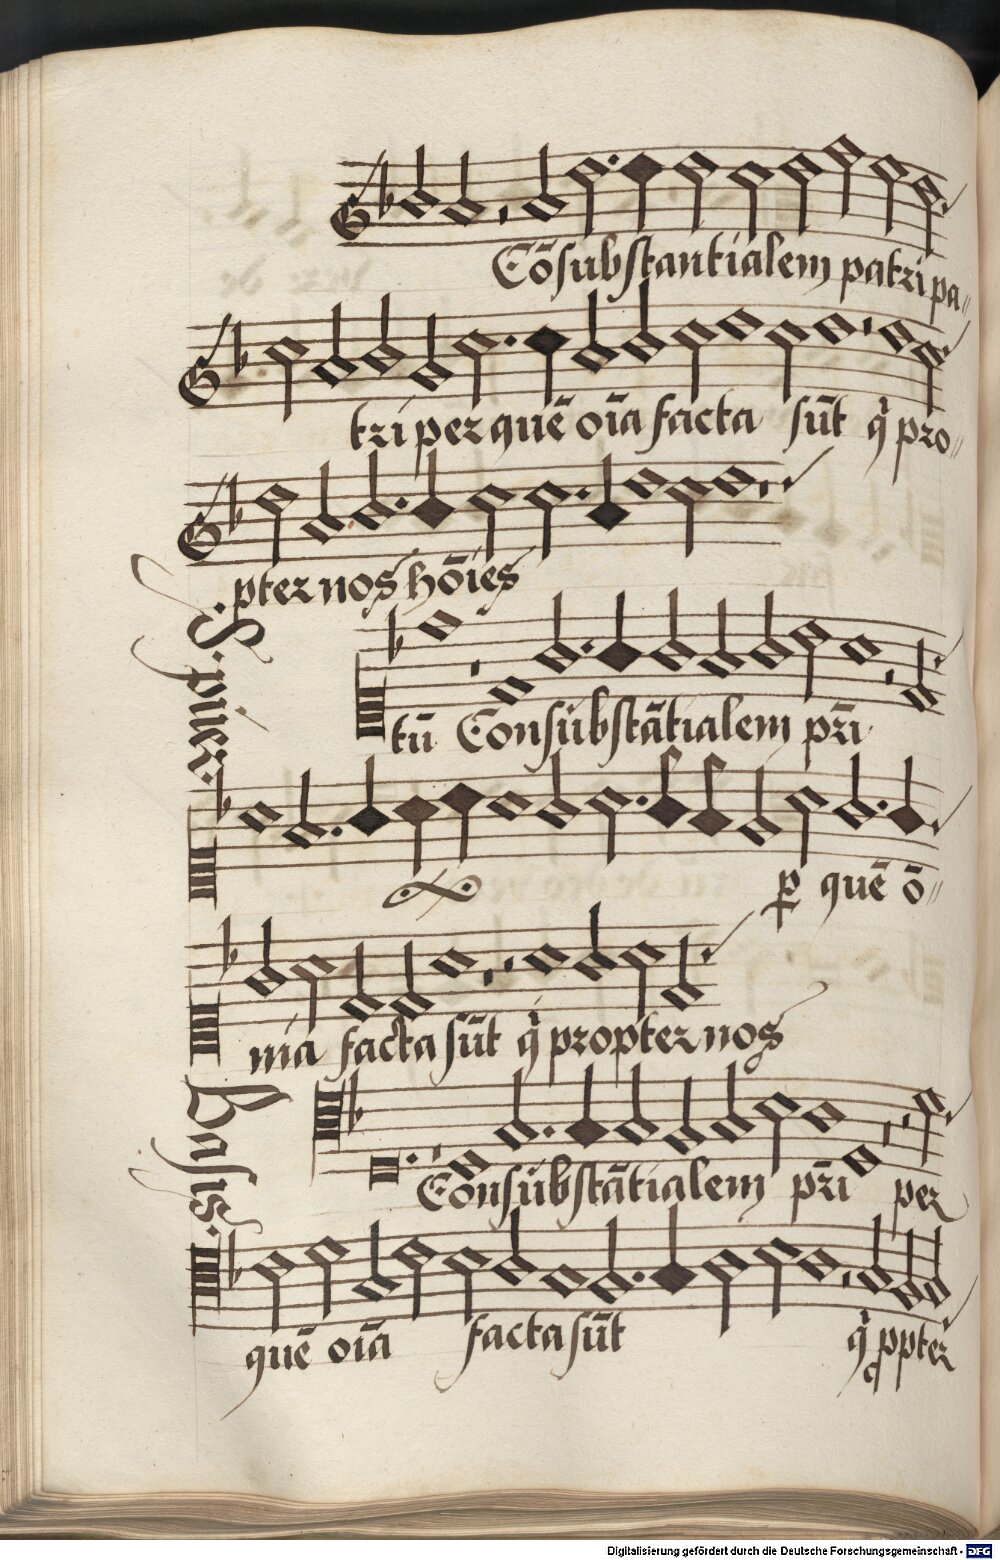 Cōsubstantialem patri pa〃
tri per quē oīa facta sūt q̇ pro〃
pter nos hōies
S. puer.
tū Consubstātialem pr̄i
ꝑ quē ō〃
nia facta sūt q̇ propter nos
Basis.
Consubstātialem pr̄i per
quē oīa facta sūt q̇ ꝓpter
Digitalisierung gefördert durch die Deutsche Forschungsgemeinschaft - DFG